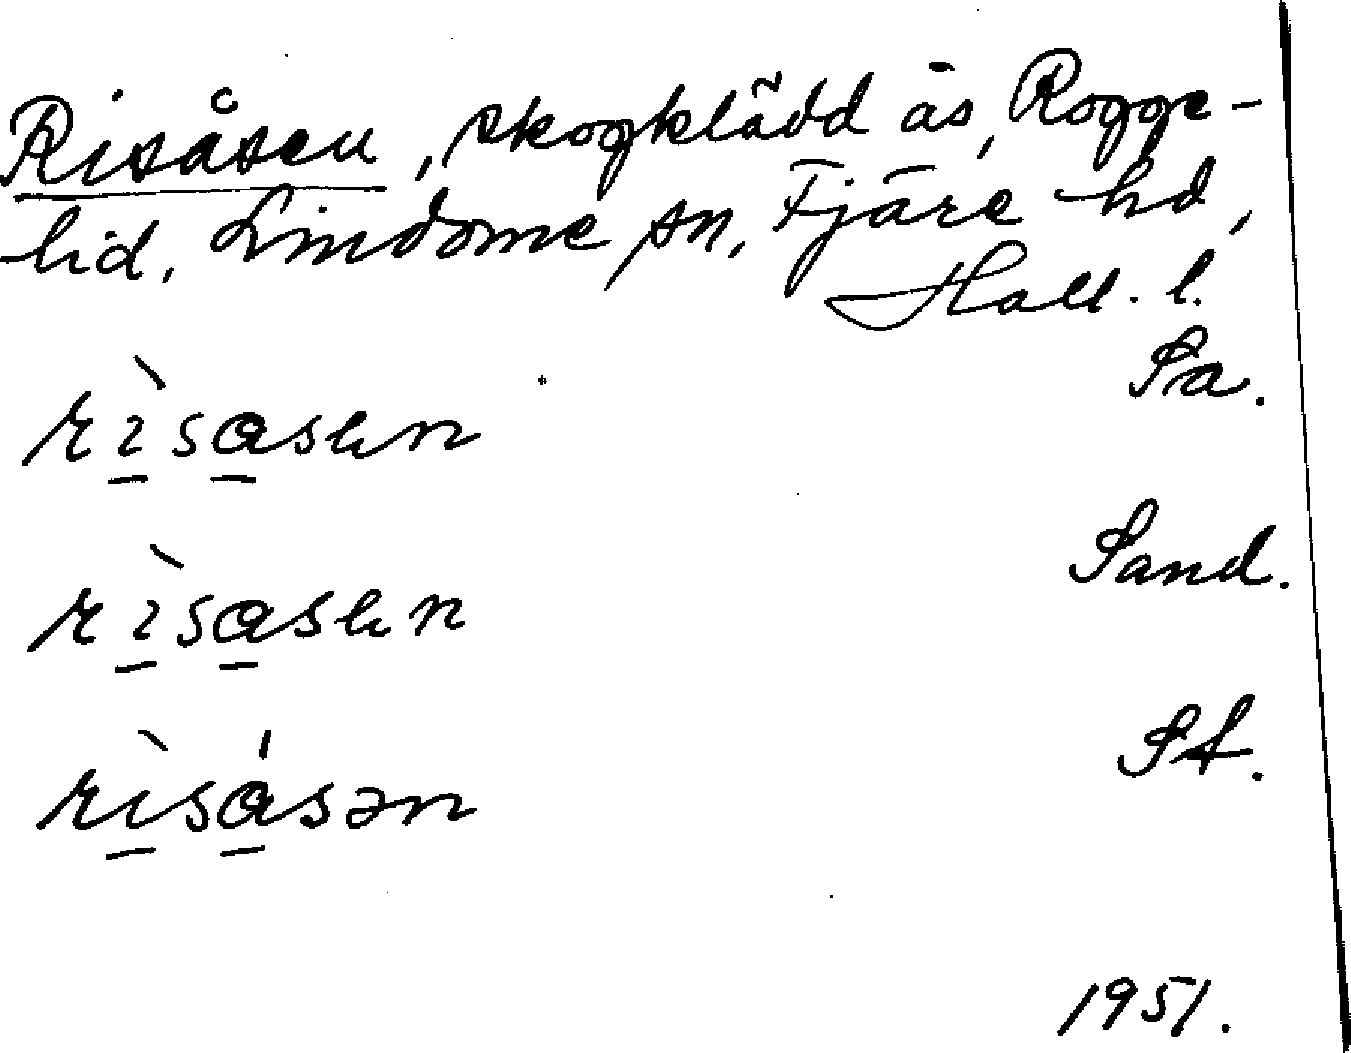 Risåsen, skogklädd ås, Rogge-
lid, Lindome sn, Fjäre hd,
Hall. l.
Sa.
rìsasen
Sand.
rìsasen
St.
rìsásən
1951.